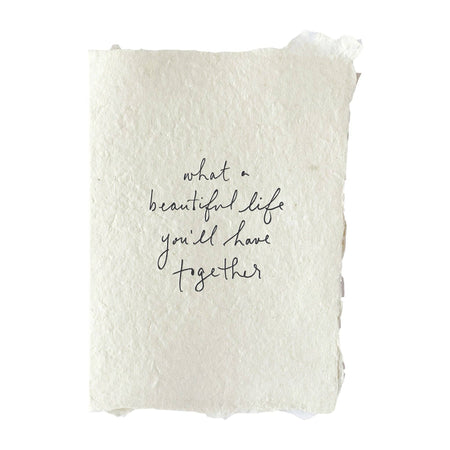 what a
beautiful life
you'll have
together